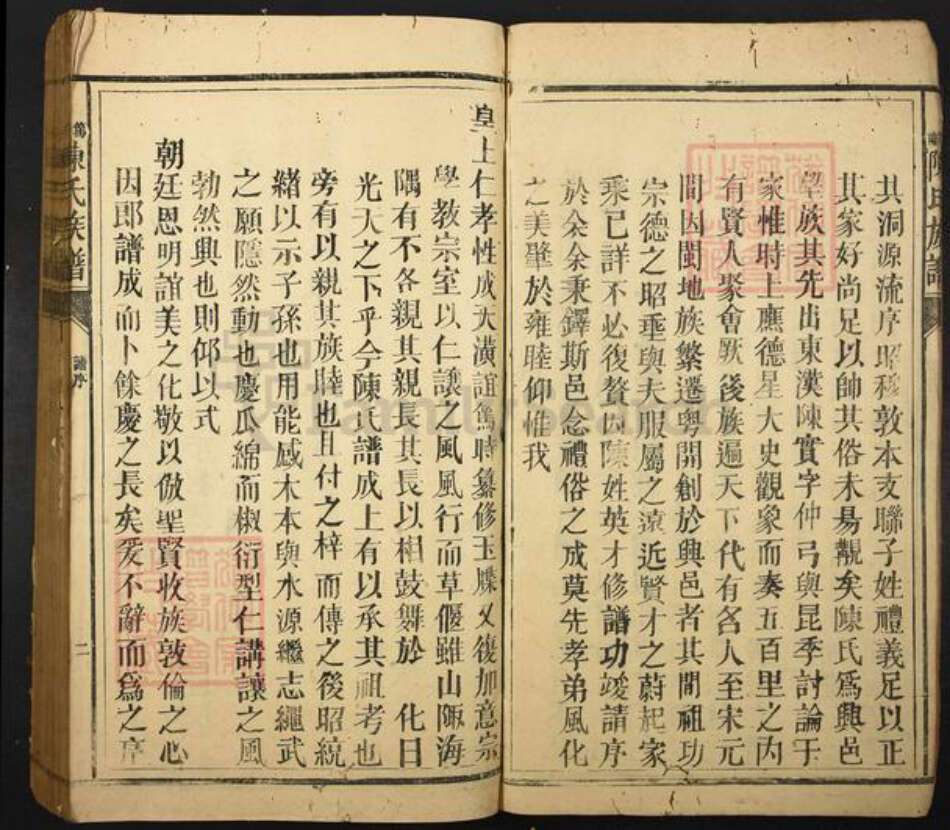 其洞源流序昭穆敦本支聯子姓禮義足以正
其家好尚足以帥其俗未易覯矣陳氏爲興邑
望族其先出東漢陳實字仲弓與昆季討論于
家惟時上應德星大史觀象而奏五百里之內
有賢人聚會厥後族遍天下代有各人至宋元
間因閩地族繁遷粵開創於興邑者其間祖功
宗德之昭垂與夫服屬之遠近賢才之蔚起家
乘已詳不必復贅因陳姓英才修譜功竣請序
於余余秉鐸斯邑念禮俗之成莫先孝弟風化
之美肇於雍睦仰惟我
皇上仁孝性成天潢誼篤時纂修玉牒又復加意宗
學教宗室以仁讓之風風行而草偃雖山陬海
隅有不各親其親長其長以相鼓舞於 化日
光天之下乎今陳氏譜成上有以承其祖考也
旁有以親其族睦也且付之梓而傳之後昭統
緒以示子孫也用能感木本與水源繼志繩武
之願隱然動也慶瓜綿而椒衍型仁講讓之風
勃然興也則仰以式
朝廷恩明誼美之化敬以倣聖賢收族敦倫之心
因郎譜成而卜餘慶之長矣爰不辭而爲之序
陳氏族譜
譜序
二
陳氏族譜